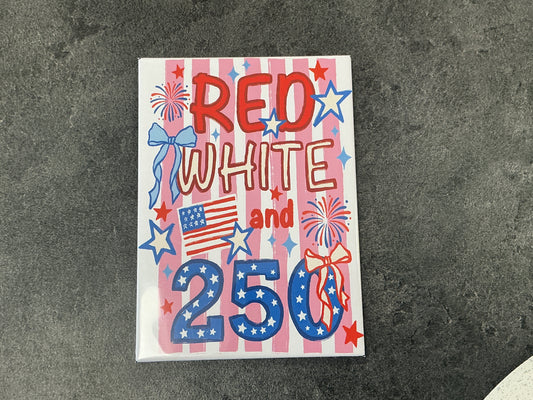 RED
WHITE
and
250